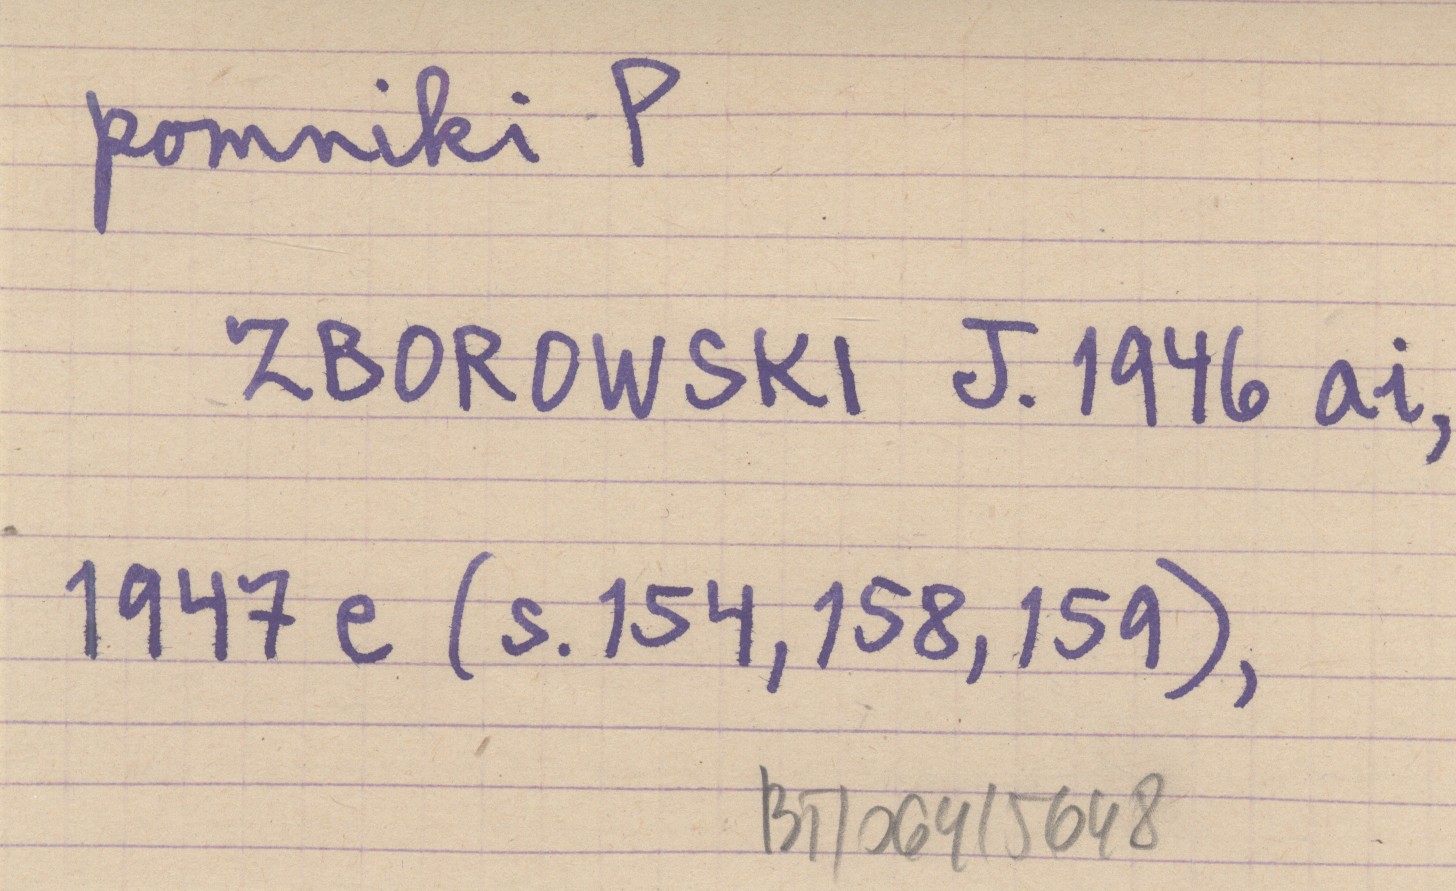 pomniki P
ZBOROWSKI J. 1946 ai,
1947 e (s. 154, 158, 159),
BT/064/5648